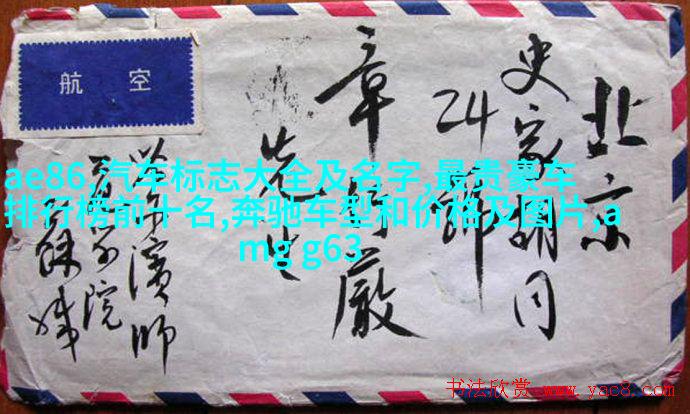 航 空
北京
史家胡同
24號
章行嚴
先生
ae86,汽车标志大全及名字,最贵豪车
排行榜前十名,奔驰车型和价格及图片,a
mg g63
书法欣赏 www.yac8.com